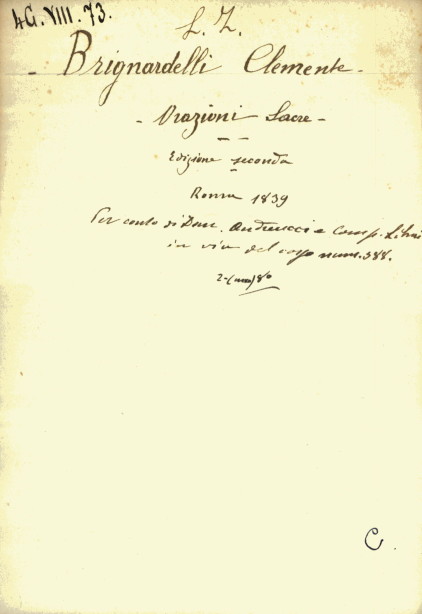 4G.VIII.73.
L. Z.
- Brignardelli Clemente -
- Orazioni Sacre -
Edizione seconda
Roma 1839
Per conto di Dom. Andreucci e Comp. Librai
in via del corso num. 388.
8º
C.